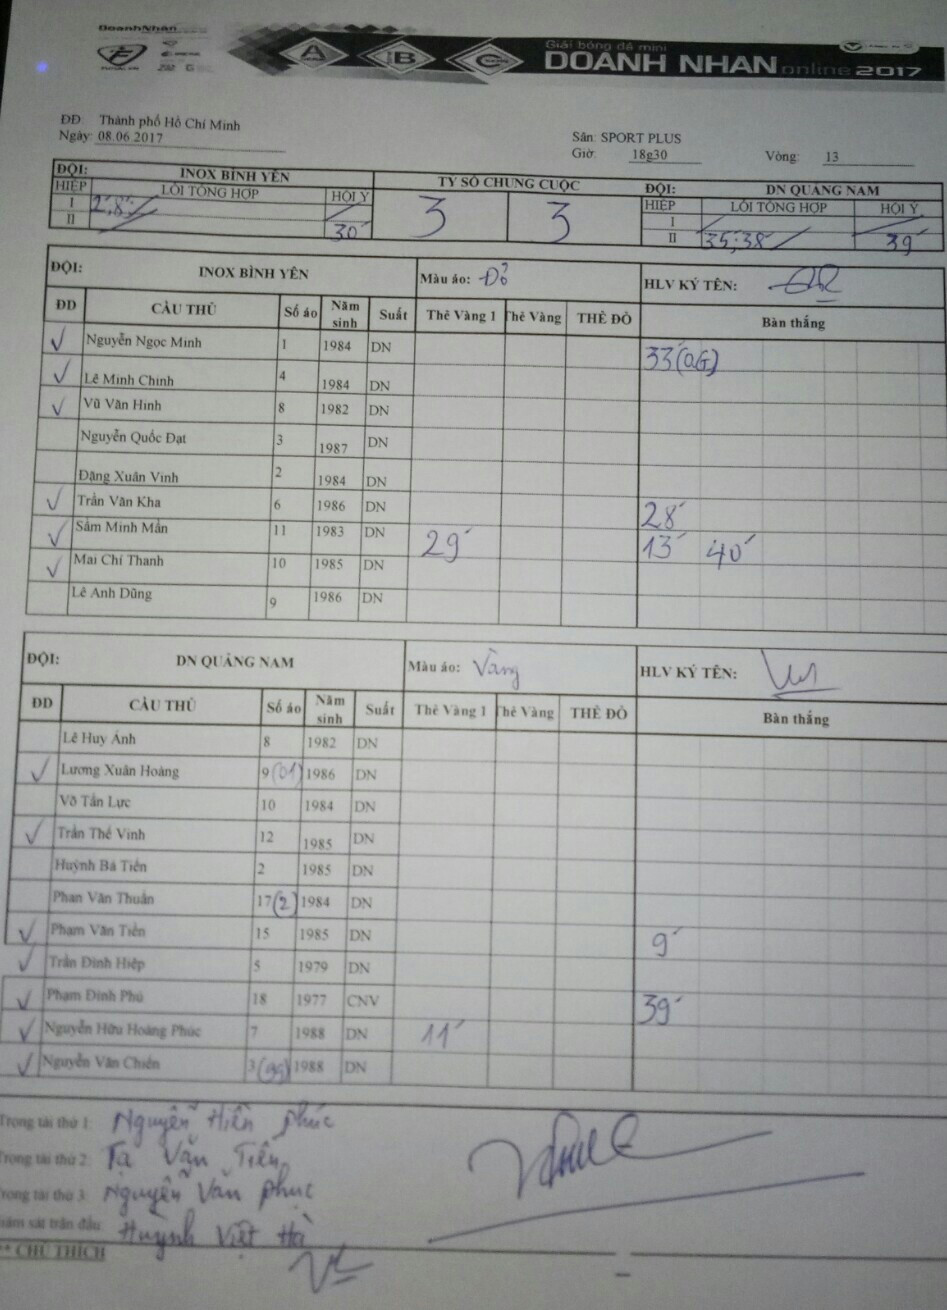 DoanhNhân
A B C
Giải bóng đá mini
DOANH NHAN online 2017
ĐĐ Thành phố Hồ Chí Minh
Ngày: 08.06.2017
Sân: SPORT PLUS
Giờ: 18g30 Vòng: 13
ĐỘI: INOX BÌNH YÊN TỶ SỐ CHUNG CUỘC ĐỘI: DN QUẢNG NAM
HIỆP LỖI TỔNG HỢP HỘI Ý 3 3 HIỆP LỖI TỔNG HỢP HỘI Ý
I 2',8' I
II 30' II 35',38' 39'
ĐỘI: INOX BÌNH YÊN Màu áo: Đỏ HLV KÝ TÊN:
ĐD CẦU THỦ Số áo Năm sinh Suất Thẻ Vàng 1 Thẻ Vàng THẺ ĐỎ Bàn thắng
✓ Nguyễn Ngọc Minh 1 1984 DN 33'(O.G)
✓ Lê Minh Chinh 4 1984 DN
✓ Vũ Văn Hinh 8 1982 DN
Nguyễn Quốc Đạt 3 1987 DN
Đặng Xuân Vinh 2 1984 DN
✓ Trần Văn Kha 6 1986 DN 28'
✓ Sầm Minh Mẫn 11 1983 DN 29' 13' 40'
✓ Mai Chí Thanh 10 1985 DN
Lê Anh Dũng 9 1986 DN
ĐỘI: DN QUẢNG NAM Màu áo: Vàng HLV KÝ TÊN:
ĐD CẦU THỦ Số áo Năm sinh Suất Thẻ Vàng 1 Thẻ Vàng THẺ ĐỎ Bàn thắng
Lê Huy Ánh 8 1982 DN
✓ Lương Xuân Hoàng 9 (01) 1986 DN
Võ Tấn Lực 10 1984 DN
✓ Trần Thế Vinh 12 1985 DN
Huỳnh Bá Tiến 2 1985 DN
Phan Văn Thuần 17 (2) 1984 DN
✓ Phạm Văn Tiến 15 1985 DN 9'
✓ Trần Đình Hiệp 5 1979 DN
✓ Phạm Đình Phú 18 1977 CNV 39'
✓ Nguyễn Hữu Hoàng Phúc 7 1988 DN 11'
✓ Nguyễn Văn Chiến 3 (99) 1988 DN
Trọng tài thứ 1: Nguyễn Hiền Phúc
Trọng tài thứ 2: Tạ Văn Tiến
Trọng tài thứ 3: Nguyễn Văn Phục
Giám sát trận đấu: Huỳnh Việt Hà
** CHÚ THÍCH